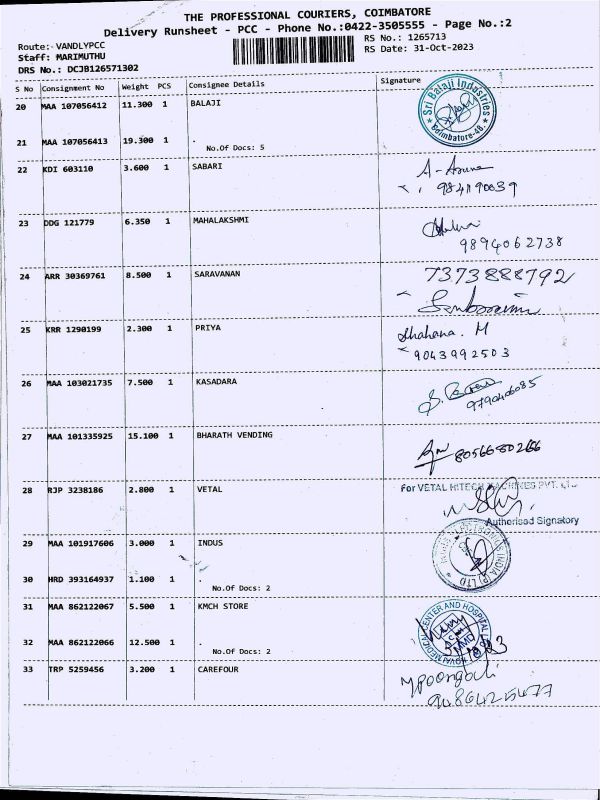 THE PROFESSIONAL COURIERS, COIMBATORE
Delivery Runsheet - PCC - Phone No.:0422-3505555 - Page No.:2
Route:- VANDLYPCC
RS No.: 1265713
Staff: MARIMUTHU
RS Date: 31-Oct-2023
DRS No.: DCJB126571302
S No Consignment No Weight PCS Consignee Details Signature
20 MAA 107056412 11.300 1 BALAJI
Sri Balaji Industries
Coimbatore-48
21 MAA 107056413 19.300 1 .
No.Of Docs: 5
22 KDI 603110 3.600 1 SABARI
A-
23 DDG 121779 6.350 1 MAHALAKSHMI
9894062738
24 ARR 30369761 8.500 1 SARAVANAN
7373888792
25 KRR 1290199 2.300 1 PRIYA
Shahana. M
9043992503
26 MAA 103021735 7.500 1 KASADARA
27 MAA 101335925 15.100 1 BHARATH VENDING
8056680266
28 RJP 3238186 2.800 1 VETAL
For VETAL HITECH MACHINES PVT. LTD.
Authorised Signatory
29 MAA 101917606 3.000 1 INDUS
INDIA (P) LTD
30 HRD 393164937 1.100 1 .
No.Of Docs: 2
31 MAA 862122067 5.500 1 KMCH STORE
KOVAI MEDICAL CENTER AND HOSPITAL
32 MAA 862122066 12.500 1 .
No.Of Docs: 2
33 TRP 5259456 3.200 1 CAREFOUR